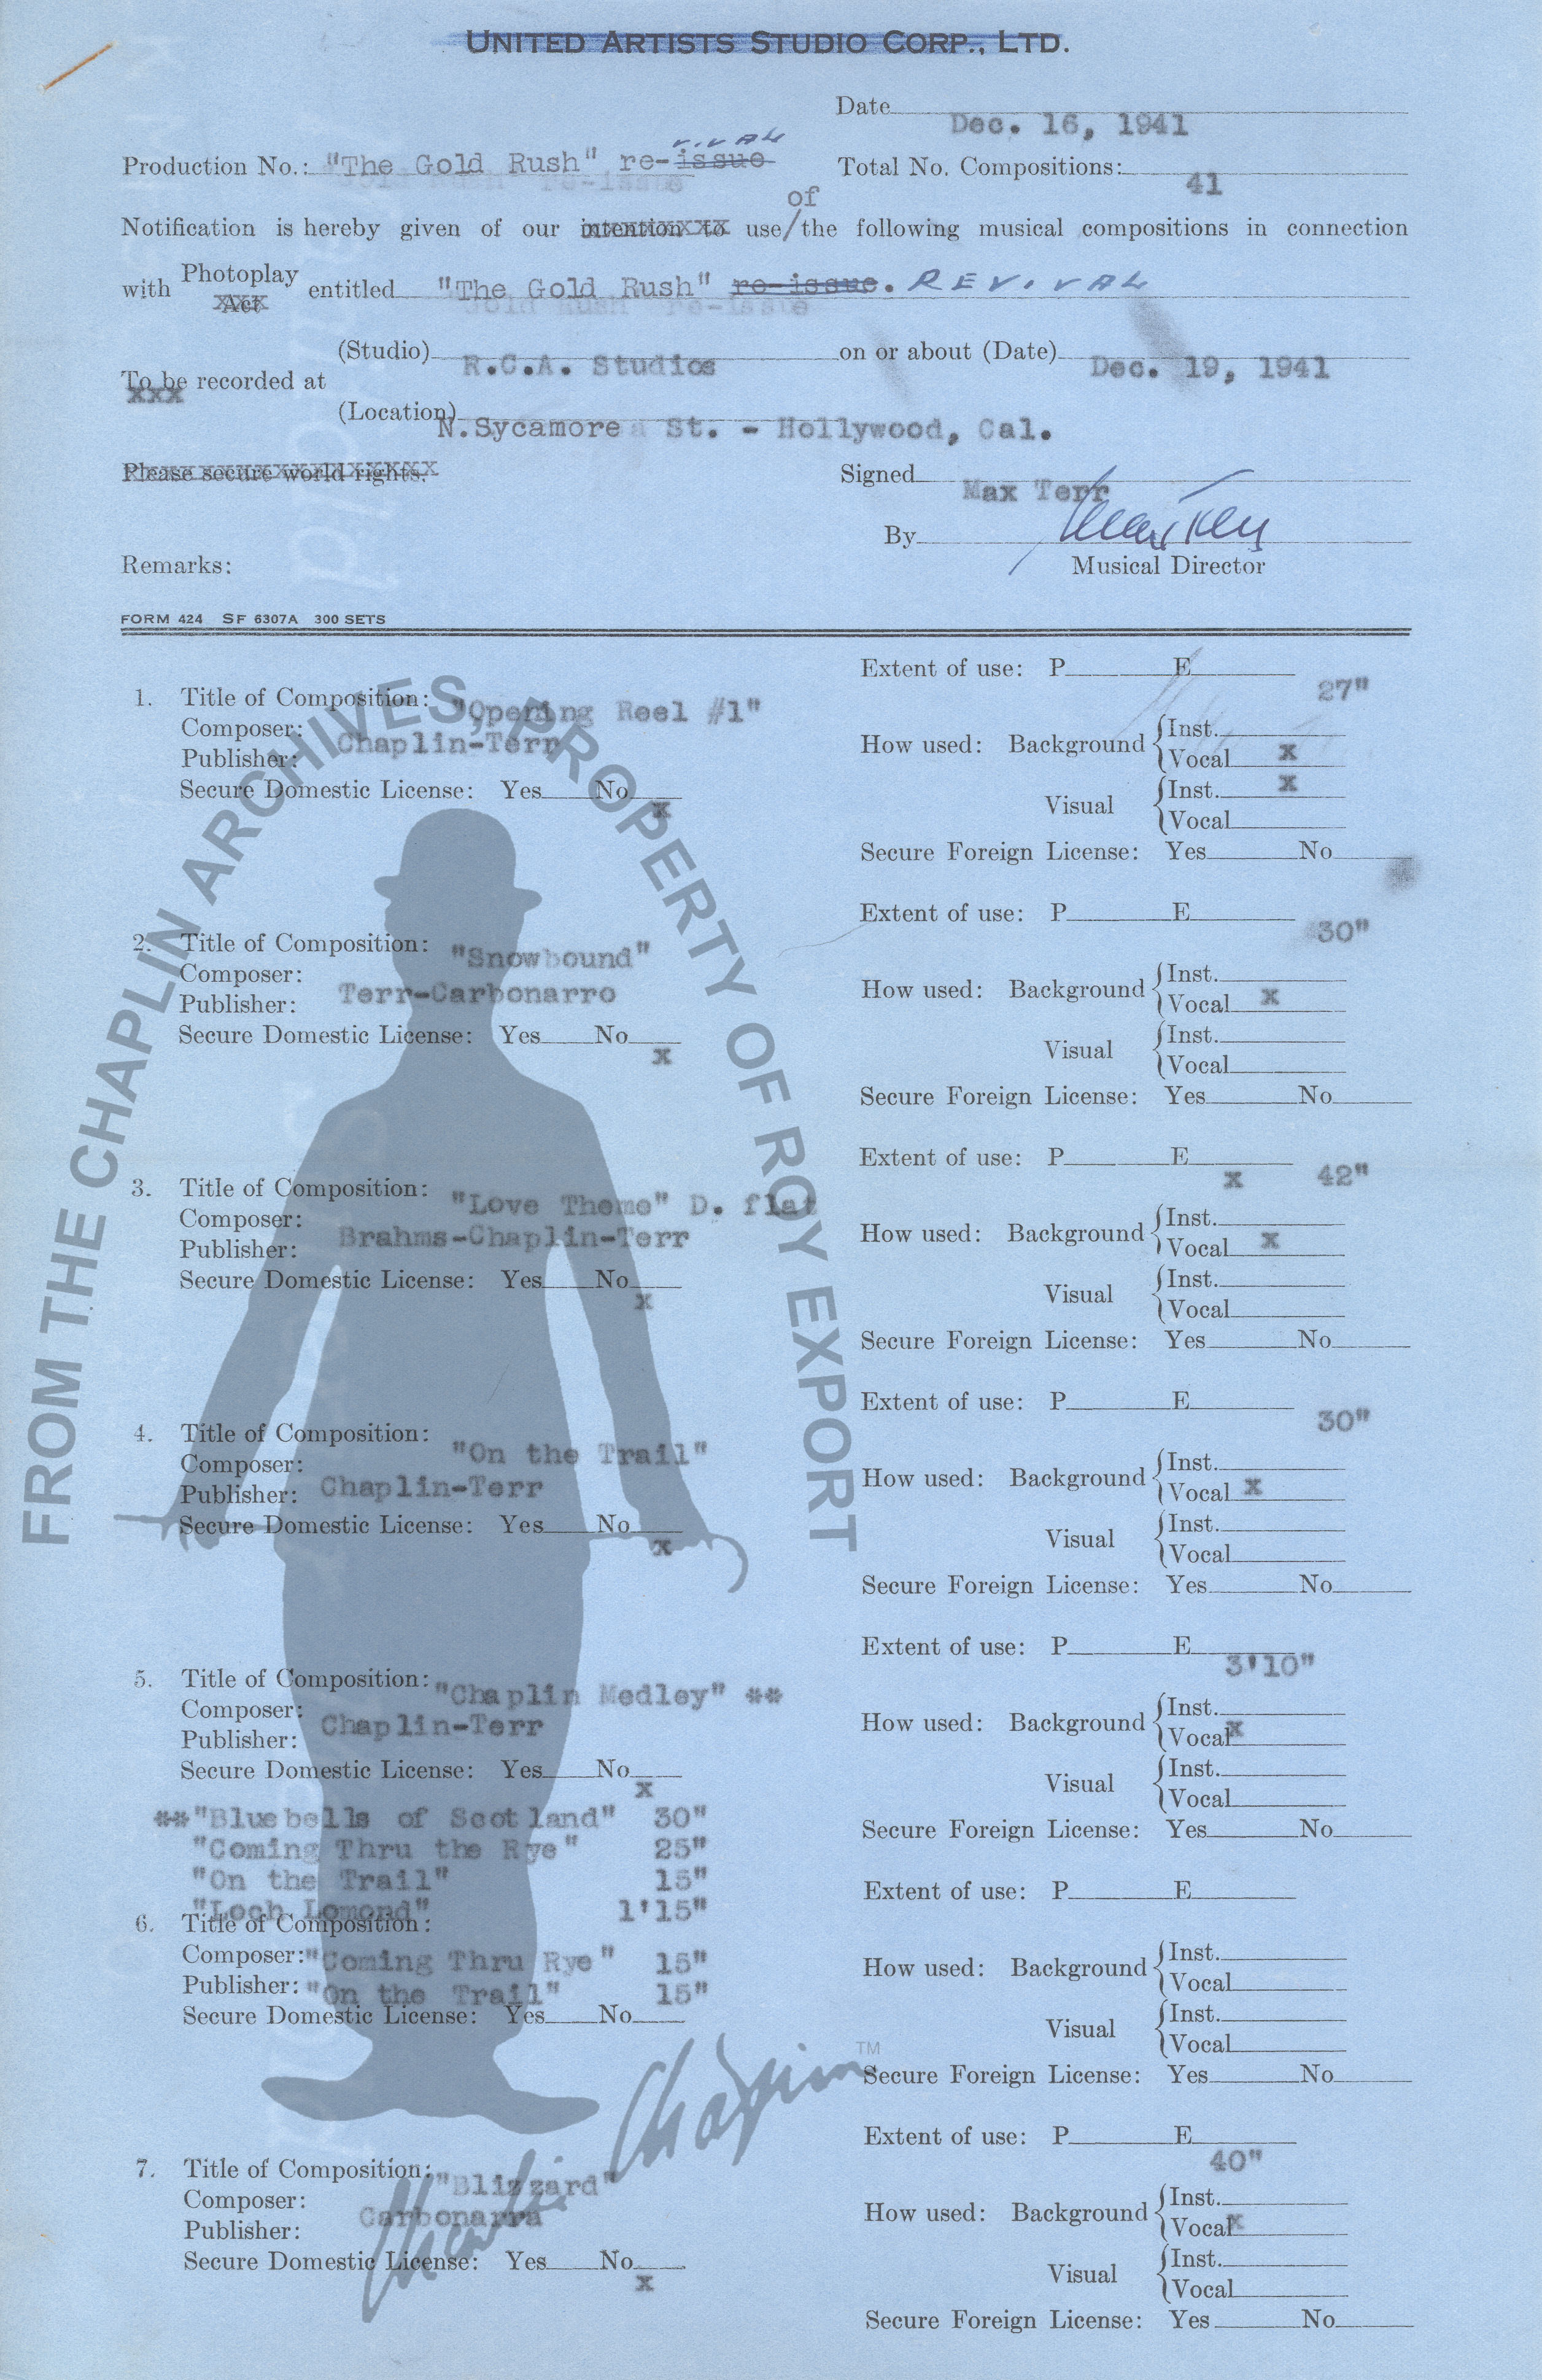 UNITED ARTISTS STUDIO CORP., LTD.
Date Dec. 16, 1941
Production No.: "The Gold Rush" re-issue vival
Total No. Compositions: 41
Notification is hereby given of our intention to use/of the following musical compositions in connection
with Photoplay Act entitled "The Gold Rush" re-issue. REVIVAL
To be recorded at
xxx
(Studio) R.C.A. Studios on or about (Date) Dec. 19, 1941
(Location) N.Sycamore St. - Hollywood, Cal.
Please secure world rights.
Signed Max Terr
By Max Terr
Musical Director
Remarks:
FORM 424 SF 6307A 300 SETS
1. Title of Composition: "Opening Reel #1"
Composer: Chaplin-Terr
Publisher:
Secure Domestic License: Yes No x
Extent of use: P E 27"
How used: Background Inst.
Vocal x
Visual Inst. x
Vocal
Secure Foreign License: Yes No
2. Title of Composition: "Snowbound"
Composer: Terr-Carbonarro
Publisher:
Secure Domestic License: Yes No x
Extent of use: P E 30"
How used: Background Inst.
Vocal x
Visual Inst.
Vocal
Secure Foreign License: Yes No
3. Title of Composition: "Love Theme" D. flat
Composer: Brahms-Chaplin-Terr
Publisher:
Secure Domestic License: Yes No x
Extent of use: P E x 42"
How used: Background Inst.
Vocal x
Visual Inst.
Vocal
Secure Foreign License: Yes No
4. Title of Composition: "On the Trail"
Composer: Chaplin-Terr
Publisher:
Secure Domestic License: Yes No x
Extent of use: P E 30"
How used: Background Inst.
Vocal x
Visual Inst.
Vocal
Secure Foreign License: Yes No
5. Title of Composition: "Chaplin Medley" **
Composer: Chaplin-Terr
Publisher:
Secure Domestic License: Yes No x
Extent of use: P E 3'10"
How used: Background Inst.
Vocal x
Visual Inst.
Vocal
Secure Foreign License: Yes No
**"Bluebells of Scotland" 30"
"Coming Thru the Rye" 25"
"On the Trail" 15"
"Loch Lomond" 1'15"
6. Title of Composition:
Composer: "Coming Thru Rye" 15"
Publisher: "On the Trail" 15"
Secure Domestic License: Yes No
Extent of use: P E
How used: Background Inst.
Vocal
Visual Inst.
Vocal
Secure Foreign License: Yes No
7. Title of Composition: "Blizzard"
Composer: Carbonarra
Publisher:
Secure Domestic License: Yes No x
Extent of use: P E 40"
How used: Background Inst.
Vocal x
Visual Inst.
Vocal
Secure Foreign License: Yes No
FROM THE CHAPLIN ARCHIVES, PROPERTY OF ROY EXPORT
Charlie Chaplin TM